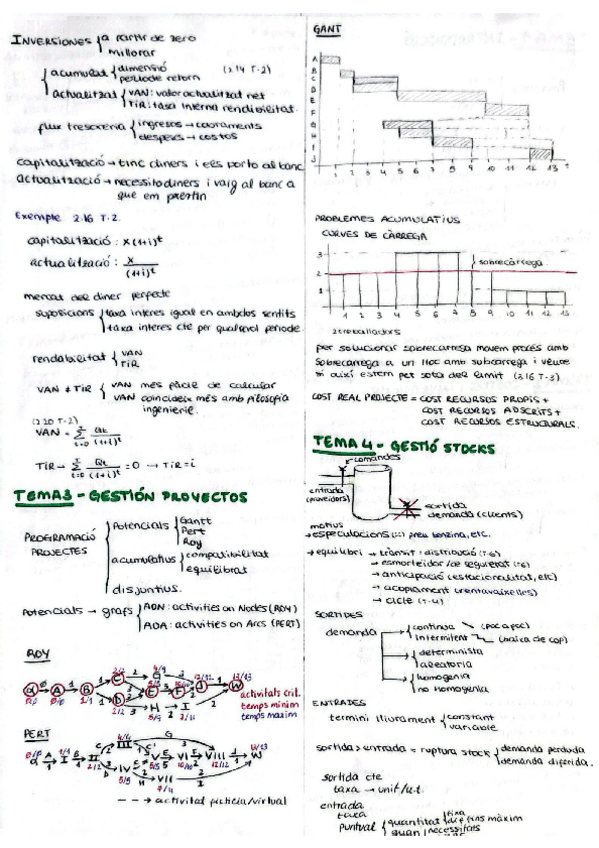 INVERSIONES { a partir de zero
millorar
{ acumulat { dimensió
període retorn
(2.14 T-2)
actualitzat { VAN: valor actualitzat net
TIR: tasa interna rendibilitat
flux tresoreria { ingresos → cobraments
despeses → costos
capitalització → tinc diners i els porto al banc
actualització → necessito diners i vaig al banc a
que em prestin
Exemple 2.16 T-2.
capitalització: x(1+i)^t
actualització: x/(1+i)^t
mercat del diner perfecte
suposicions { taxa interes igual en ambdos sentits
taxa interes cte per qualsevol periode
rendabilitat { VAN
TIR
VAN ≠ TIR { VAN més fàcil de calcular
VAN coincideix més amb filosofia
ingenieril.
(2.20 T-2)
VAN = Σ t=0 Qt/(1+i)^t
TIR → Σ t=0 Qt/(1+i)^t = 0 → TIR = i
TEMA 3 - GESTIÓN PROYECTOS
PROGRAMACIÓ
PROJECTES
Potencials { Gantt
Pert
Roy
acumulatius { compatibilitat
equilibrat
disjuntius.
Potencials → grafs { AON: activities on Nodes (ROY)
AOA: activities on Arcs (PERT)
ROY
activitats crit.
temps mínim
temps màxim
PERT
---→ activitat ficticia/virtual
GANT
A
B
C
D
E
F
G
H
I
J
1 2 3 4 5 6 7 8 9 10 11 12 13 t
PROBLEMES ACUMULATIUS
CURVES DE CÀRREGA
3
2
1
sobrecàrrega
1 2 3 4 5 6 7 8 9 10 11 12 13
2 treballadors
per solucionar sobrecarrega movem procés amb
sobrecarrega a un lloc amb subcarrega i veure
si així estem per sota del limit (3.16 T-3)
COST REAL PROJECTE = COST RECURSOS PROPIS +
COST RECURSOS ADSCRITS +
COST RECURSOS ESTRUCTURALS.
TEMA 4 - GESTIÓ STOCKS
comandes
entrada
(proveidors)
sortida
demanda (clients)
motius
→ especulacions preu benzina, etc.
→ equilibri → trànsit: distribució (T-6)
→ esmorteidor/de seguretat (T-6)
→ anticipació (estacionalitat, etc)
→ acopiament (rentavaixelles)
→ cicle (T-4)
SORTIDES
demanda
{ continua (poc a poc)
intermitent (baixa de cop)
{ determinista
aleatoria
{ homogenia
no homogenia
ENTRADES
termini lliurament { constant
variable
sortida > entrada = ruptura stock { demanda perduda
demanda diferida.
sortida cte
taxa → unit/u.t.
entrada
taxa
puntual { quantitat { fixa
dif fins màxim
quan necessitats